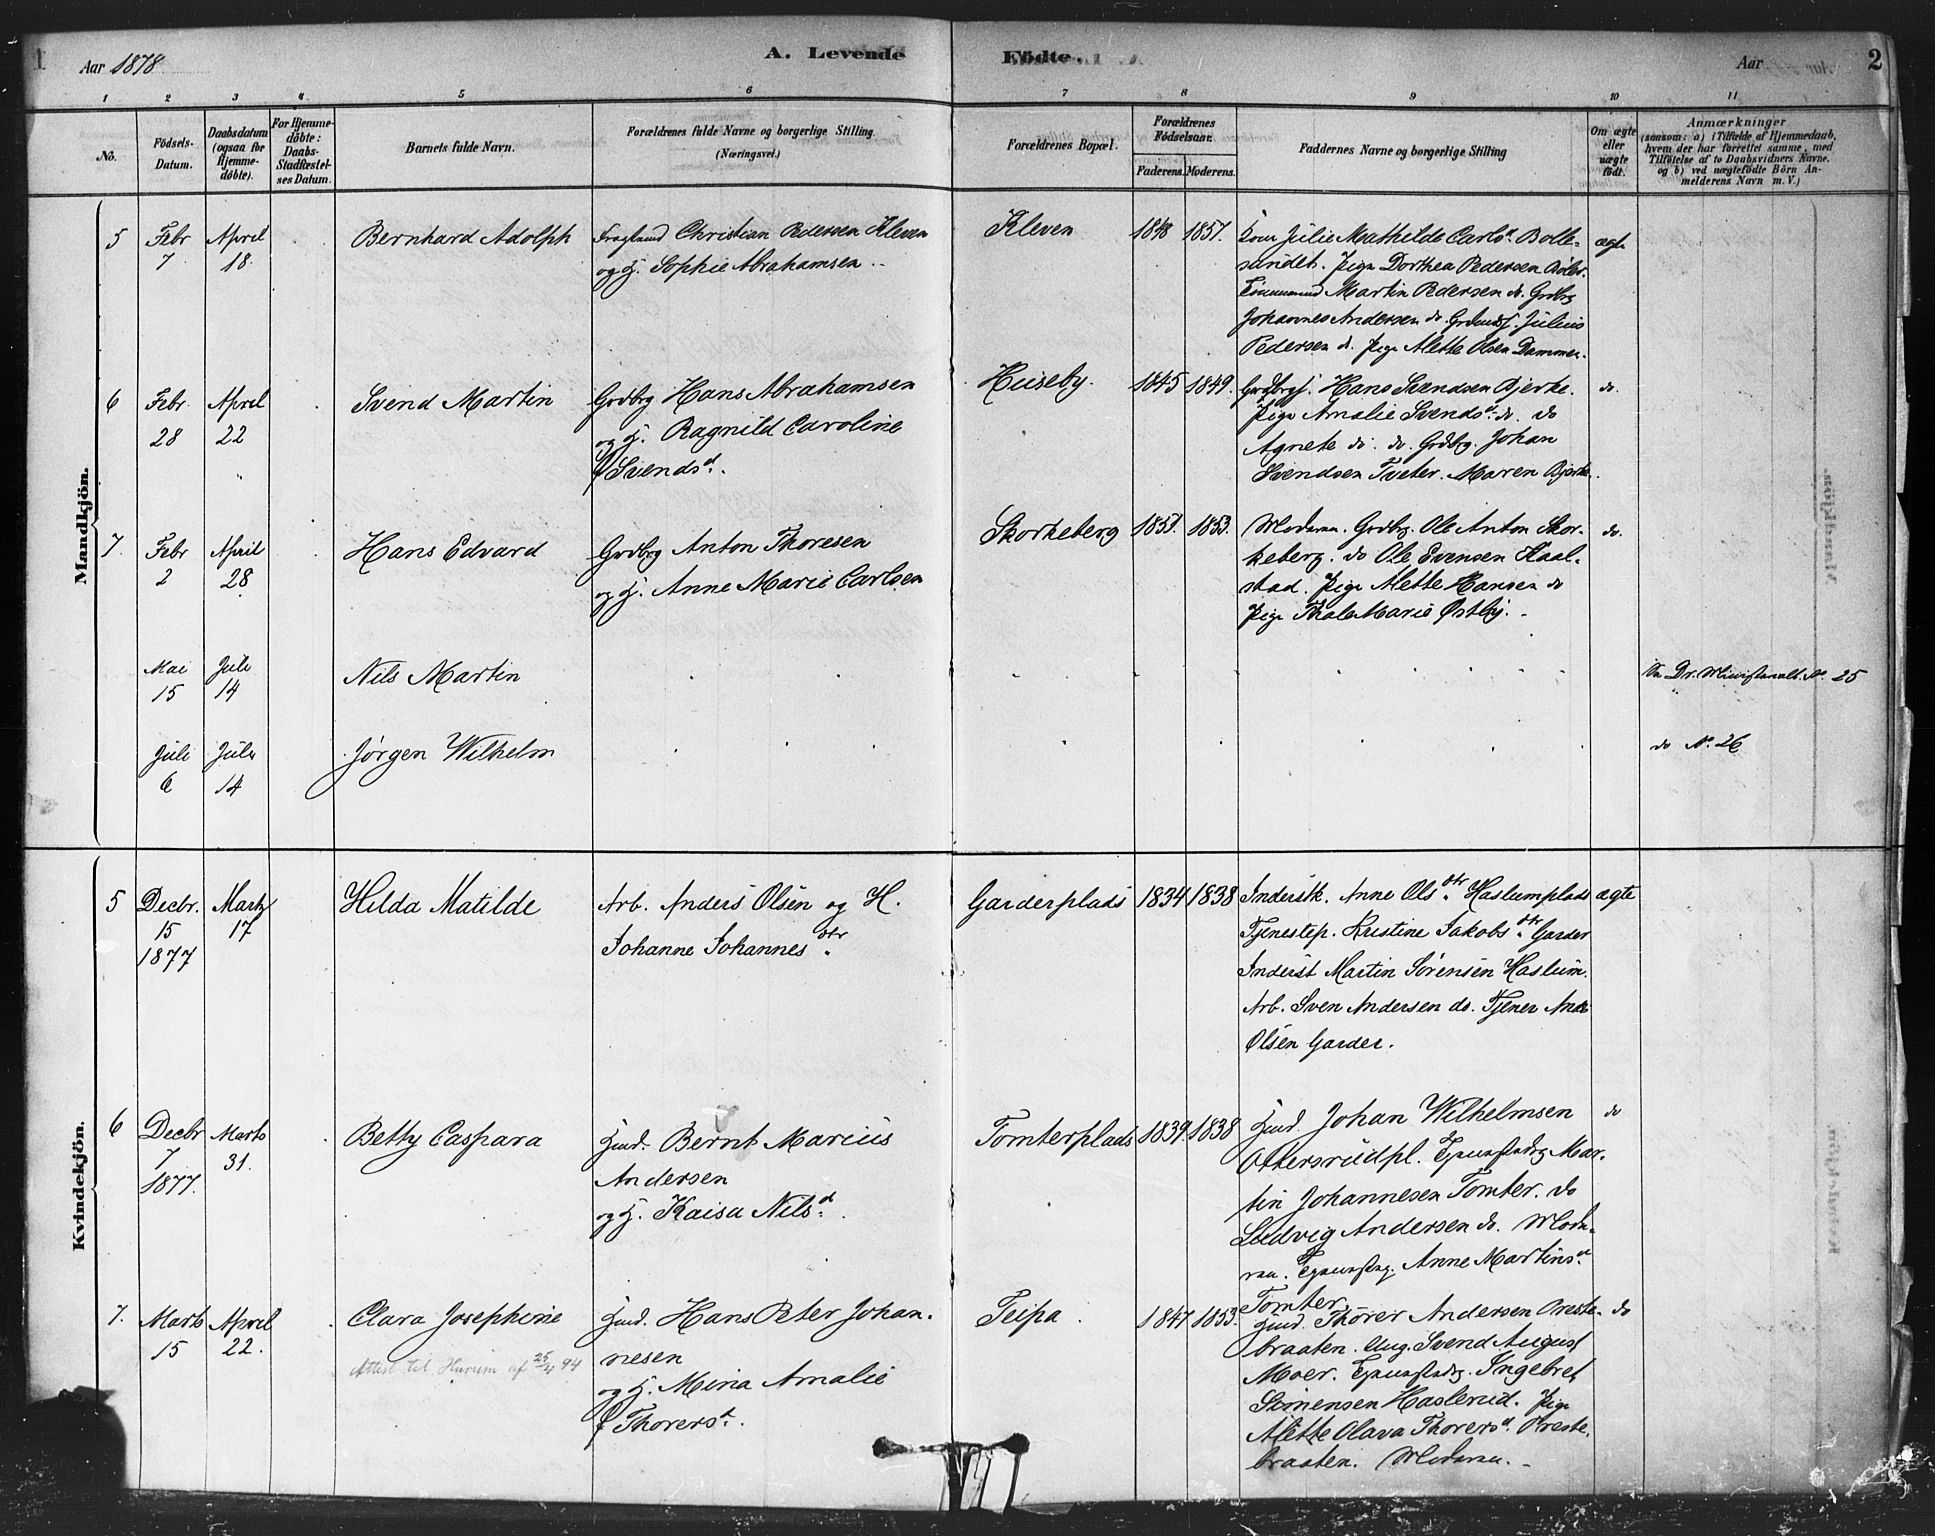 1
Aar 1878
A. Levende Födte.
Aar
2
1 2 3 4 5 6 7 8 9 10 11
No.
Födsels-Datum.
Daabsdatum (ogsaa for Hjemme-döbte).
For Hjemme-döbte: Daabs-Stadfæstel-ses Datum.
Barnets fulde Navn.
Forældrenes fulde Navne og borgerlige Stilling.
(Næringsvei.)
Forældrenes Bopæl.
Forældrenes Födselsaar.
Faderens. Moderens.
Faddernes Navne og borgerlige Stilling
Om ægte eller uægte födt.
Anmærkninger
(saasom: a) i Tilfælde af Hjemmedaab, hvem der har forrettet samme, med Tilföielse af to Daabsvidners Navne, og b) ved uægtefödte Börn An-melderens Navn m. V.)
Mandkjön.
5 Febr 7 April 18. Bernhard Adolph
Christian Pedersen Kleven
og H. Sophie Abrahamsen
Kleven 1848 1851.
Julie Mathilde Carlsd. Bolle-
sundet. Pige Dorthea Pedersen
Martin Pedersen do. Grdbrg
Johannes Andersen do. Julius
Pedersen do. Pige Alette Olsen Dammen.
ægte
6 Febr. 28 April 22 Svend Martin
Grdbrg Hans Abrahamsen
og H. Ragnild Caroline
Svendsd.
Huseby. 1845 1849.
Hans Svendsen Bjerke.
Pige Amalie Svendsd. do. do
Agnete do. do. Grdbrg. Johan
Svendsen Tveter. Maren Bjerke.
do.
7. Febr 2 April 28 Hans Edvard
Grdbrg Anton Thoresen
og H. Anne Marie Carlsen
Skorkeberg 1851. 1853.
Moderen. Grdbrg. Ole Anton Skor-
keberg. do Ole Evensen Haal-
stad. Pige Alette Hansen do
Pige Thale Marie Østby.
do.
Mai 15 Juli 14 Nils Martin
No. 25
Juli 6 Juli 14 Jørgen Wilhelm
do No. 26
Kvindekjön.
5 Decbr. 15 1877 Marts 17 Hilda Matilde
Arb. Anders Olsen og H.
Johanne Johannesdtr.
Garderplads 1834 1838
Inderstk. Anne Olsdtr. Haslumplads
Tjenestep. Kristine Jakobsdtr. Garder
Inderst Martin Sörensen Haslum.
Arb. Sven Andersen do. Tjener
Olsen Garder.
ægte
6 Decbr 7 1877. Marts 31. Betty Caspara
Hmd. Bernt Marius
Andersen
og H. Kaisa Nilsd.
Tomterplads 1839. 1838
Hmd. Johan Wilhelmsen
Ottersrudpl. Mar-
tin Johannesen Tomter. do
Ludvig Andersen do. Mode-
ren. Anne Martinsd.
Tomter.
do
7. Marts 15 April 22. Clara Josephine
Attest til Hurum af 25/4 94
Hmd. Hans Peter Johan-
nesen
og H. Mina Amalie
Thorersd.
Teipa 1847. 1853.
Hmd. Thorer Andersen Oreste-
braaten. Ung. Svend August
Moer. Ingebret
Simensen Haslerud. Pige
Alette Olava Thorersd. Oreste-
braaten. Moderen.
do